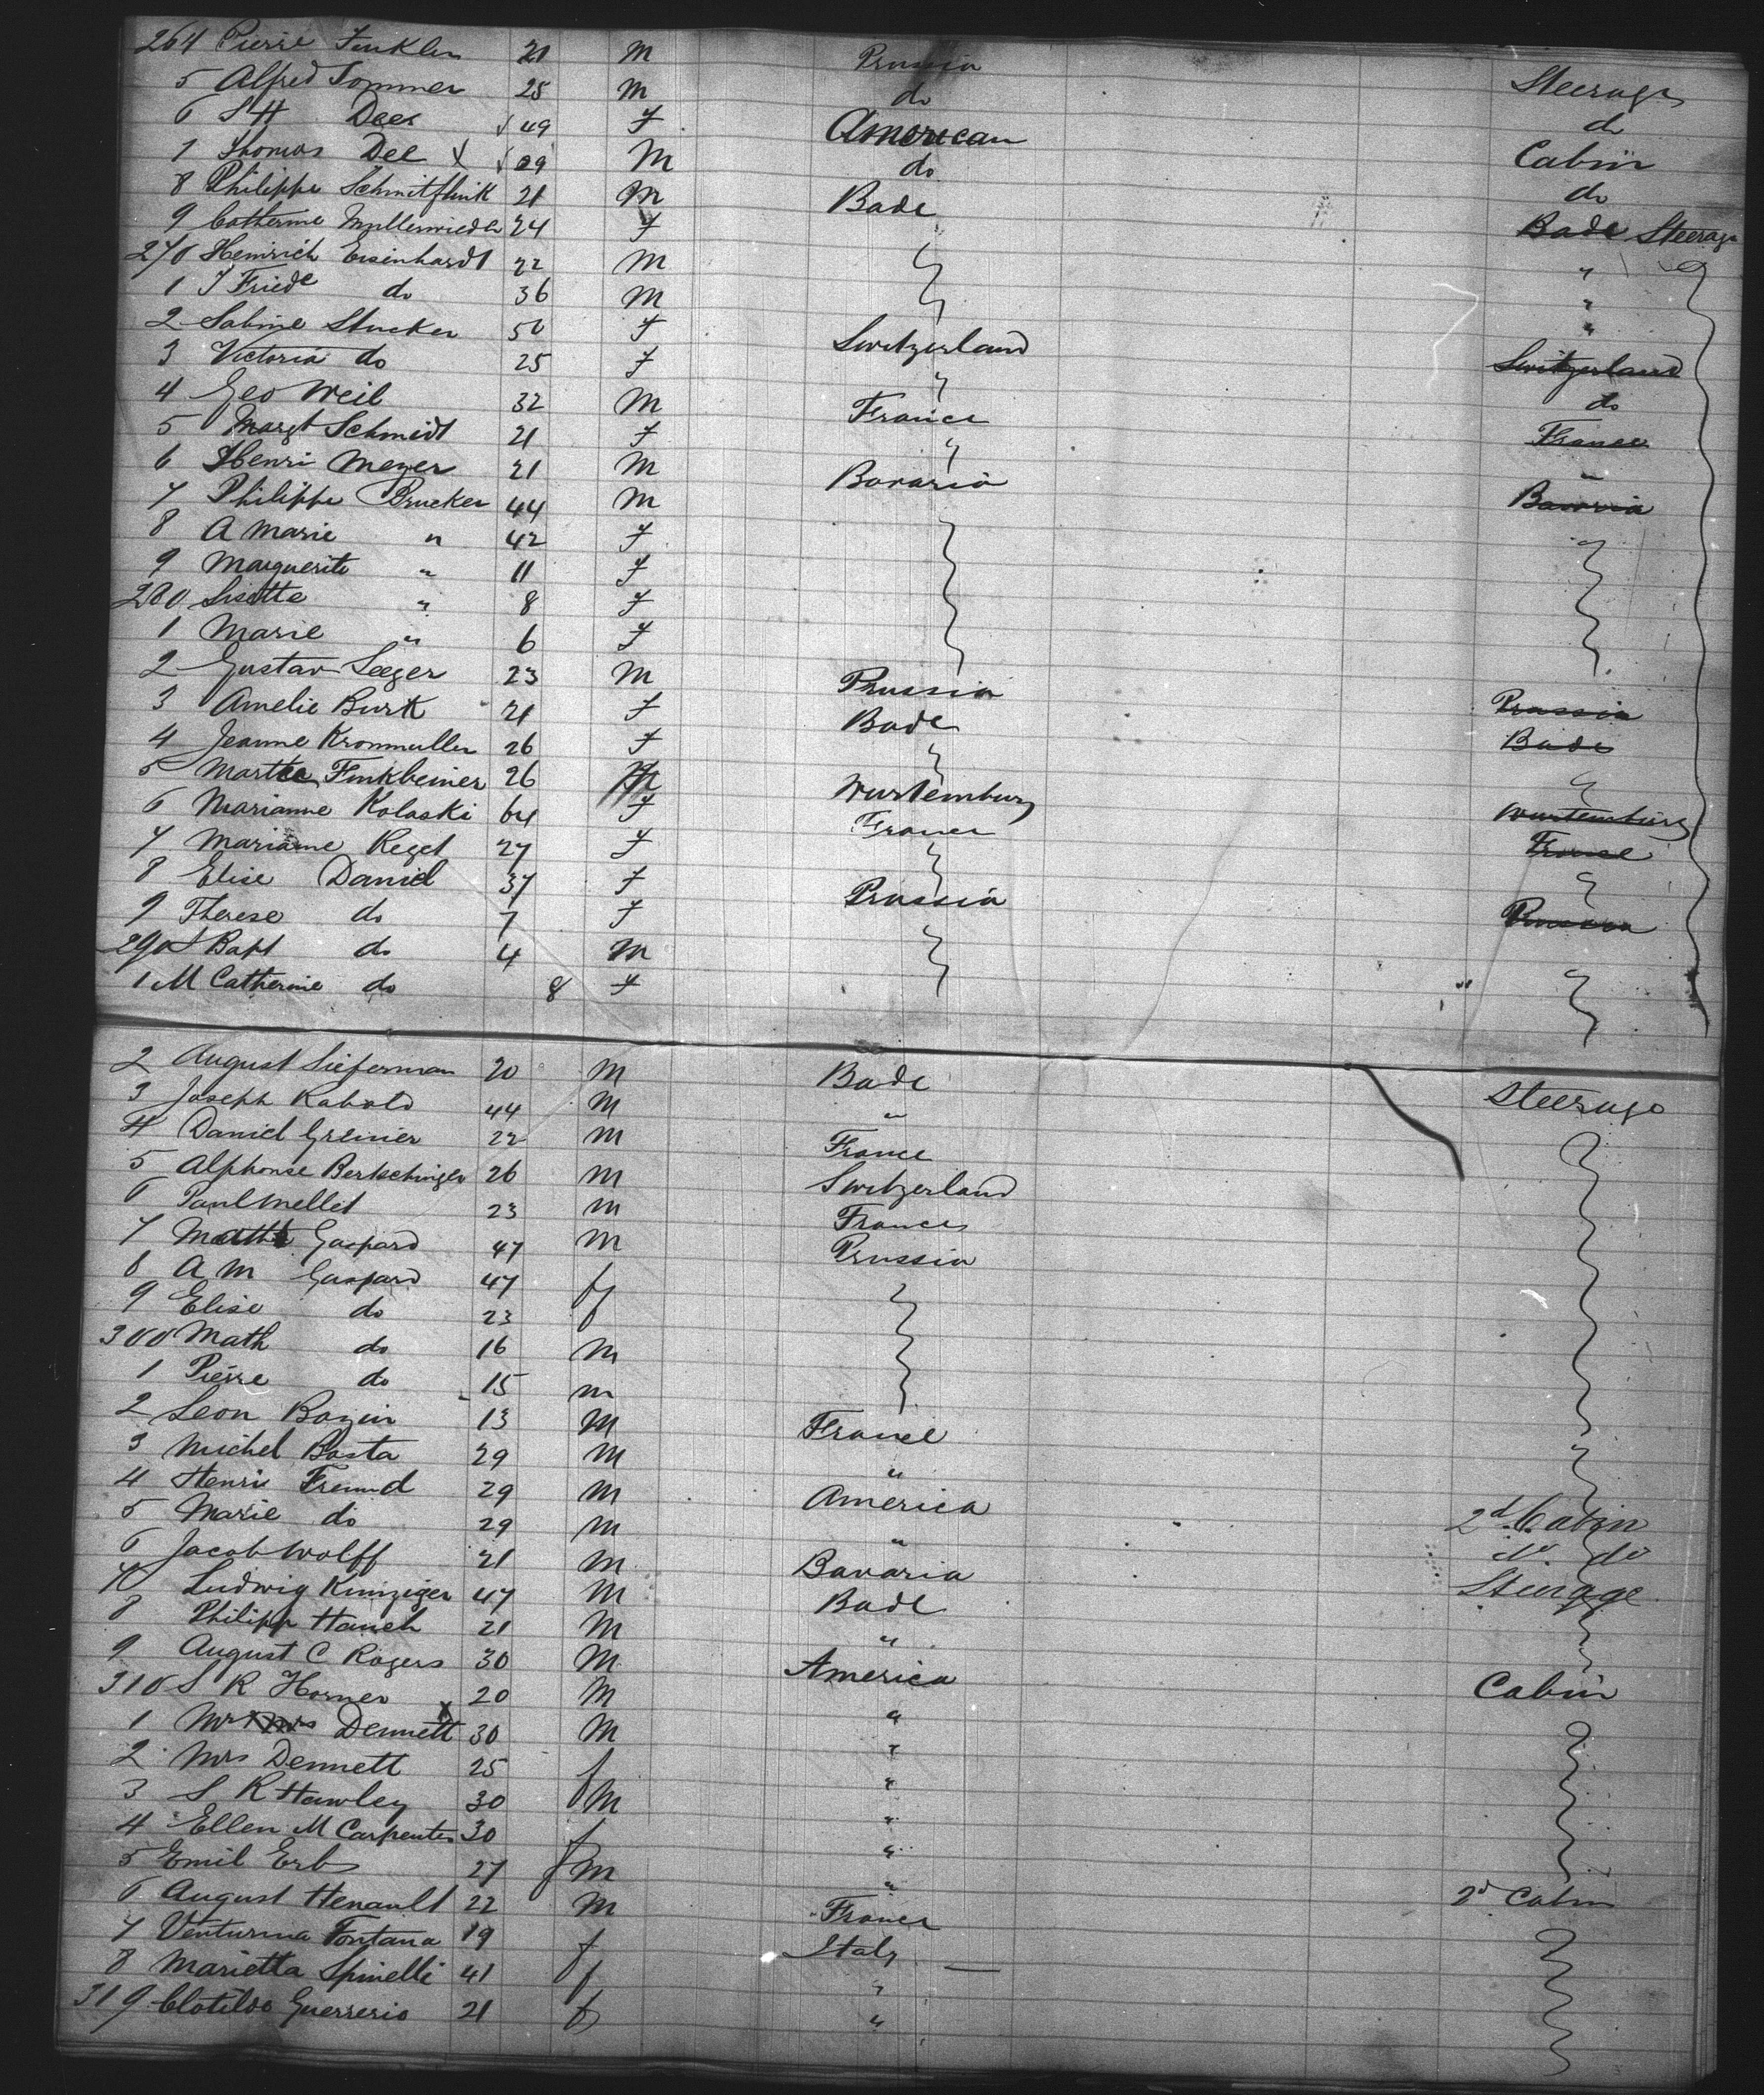 264 Pierre Finkler 21 M Prussia Steerage
5 Alfred Sommer 25 M do do
6 Dees 49 F American Cabin
7 Thomas Dee X 29 M do do
8 Philippe 21 M Bade Bade Steerage
9 Catherine 24 F "
270 Heinrich Eisenhardt 22 M "
1 J Friede do 36 M "
2 Sabine Stucker 50 F Switzerland Switzerland
3 Victoria do 25 F " do
4 Geo Weil 32 M France France
5 Margt Schmidt 21 F " "
6 Henri Meyer 21 M Bavaria Bavaria
7 Philippe Brucker 44 M
8 A Marie " 42 F
9 Marguerite " 11 F
280 Lisette " 8 F
1 Marie " 6 F
2 Gustav Seeger 23 M Prussia Prussia
3 Amelie Burk 21 F Bade Bade
4 Jeanne Kronmuller 26 F
5 Finkbeiner 26 Wurtemburg Wurtemburg
6 Marianne Kolaski 64 F France France
7 Marianne Reget 27 F
8 Elise Daniel 37 F Prussia Prussia
9 Therese do 7 F
290 Bapt do 4 M
1 M Catherine do 8 F
2 August Sieferman 20 M Bade Steerage
3 Joseph Kabold 44 M "
4 Daniel Greinier 22 M France
5 Alphonse Bertschinger 26 M Switzerland
6 Paul Mellet 23 M France
7 Gaspard 47 M Prussia
8 A M Gaspard 47 f
9 Elise do 23 f
300 Math do 16 M
1 Pierre do 15 M
2 Leon Bazin 13 M France
3 Michel Basta 29 M "
4 Henri Freund 29 M America 2d Cabin
5 Marie do 29 M " do do
6 Jacob Wolff 21 M Bavaria Steerage
7 Ludwig Kinziger 47 M Bade
8 Philipp Hauch 21 M "
9 August C Rogers 30 M America Cabin
310 S R Horner 20 M "
1 Mr Dennett X 30 M "
2 Mrs Dennett 25 f "
3 S R Hawley 30 M "
4 Ellen M Carpenter 30 f "
5 Emil Erbs 27 M " 2d Cabin
6 August Henault 22 M France
7 Venturina Fontana 19 f Italy
8 Marietta Spinelli 41 f "
319 Clotilde Guerrerio 21 f "